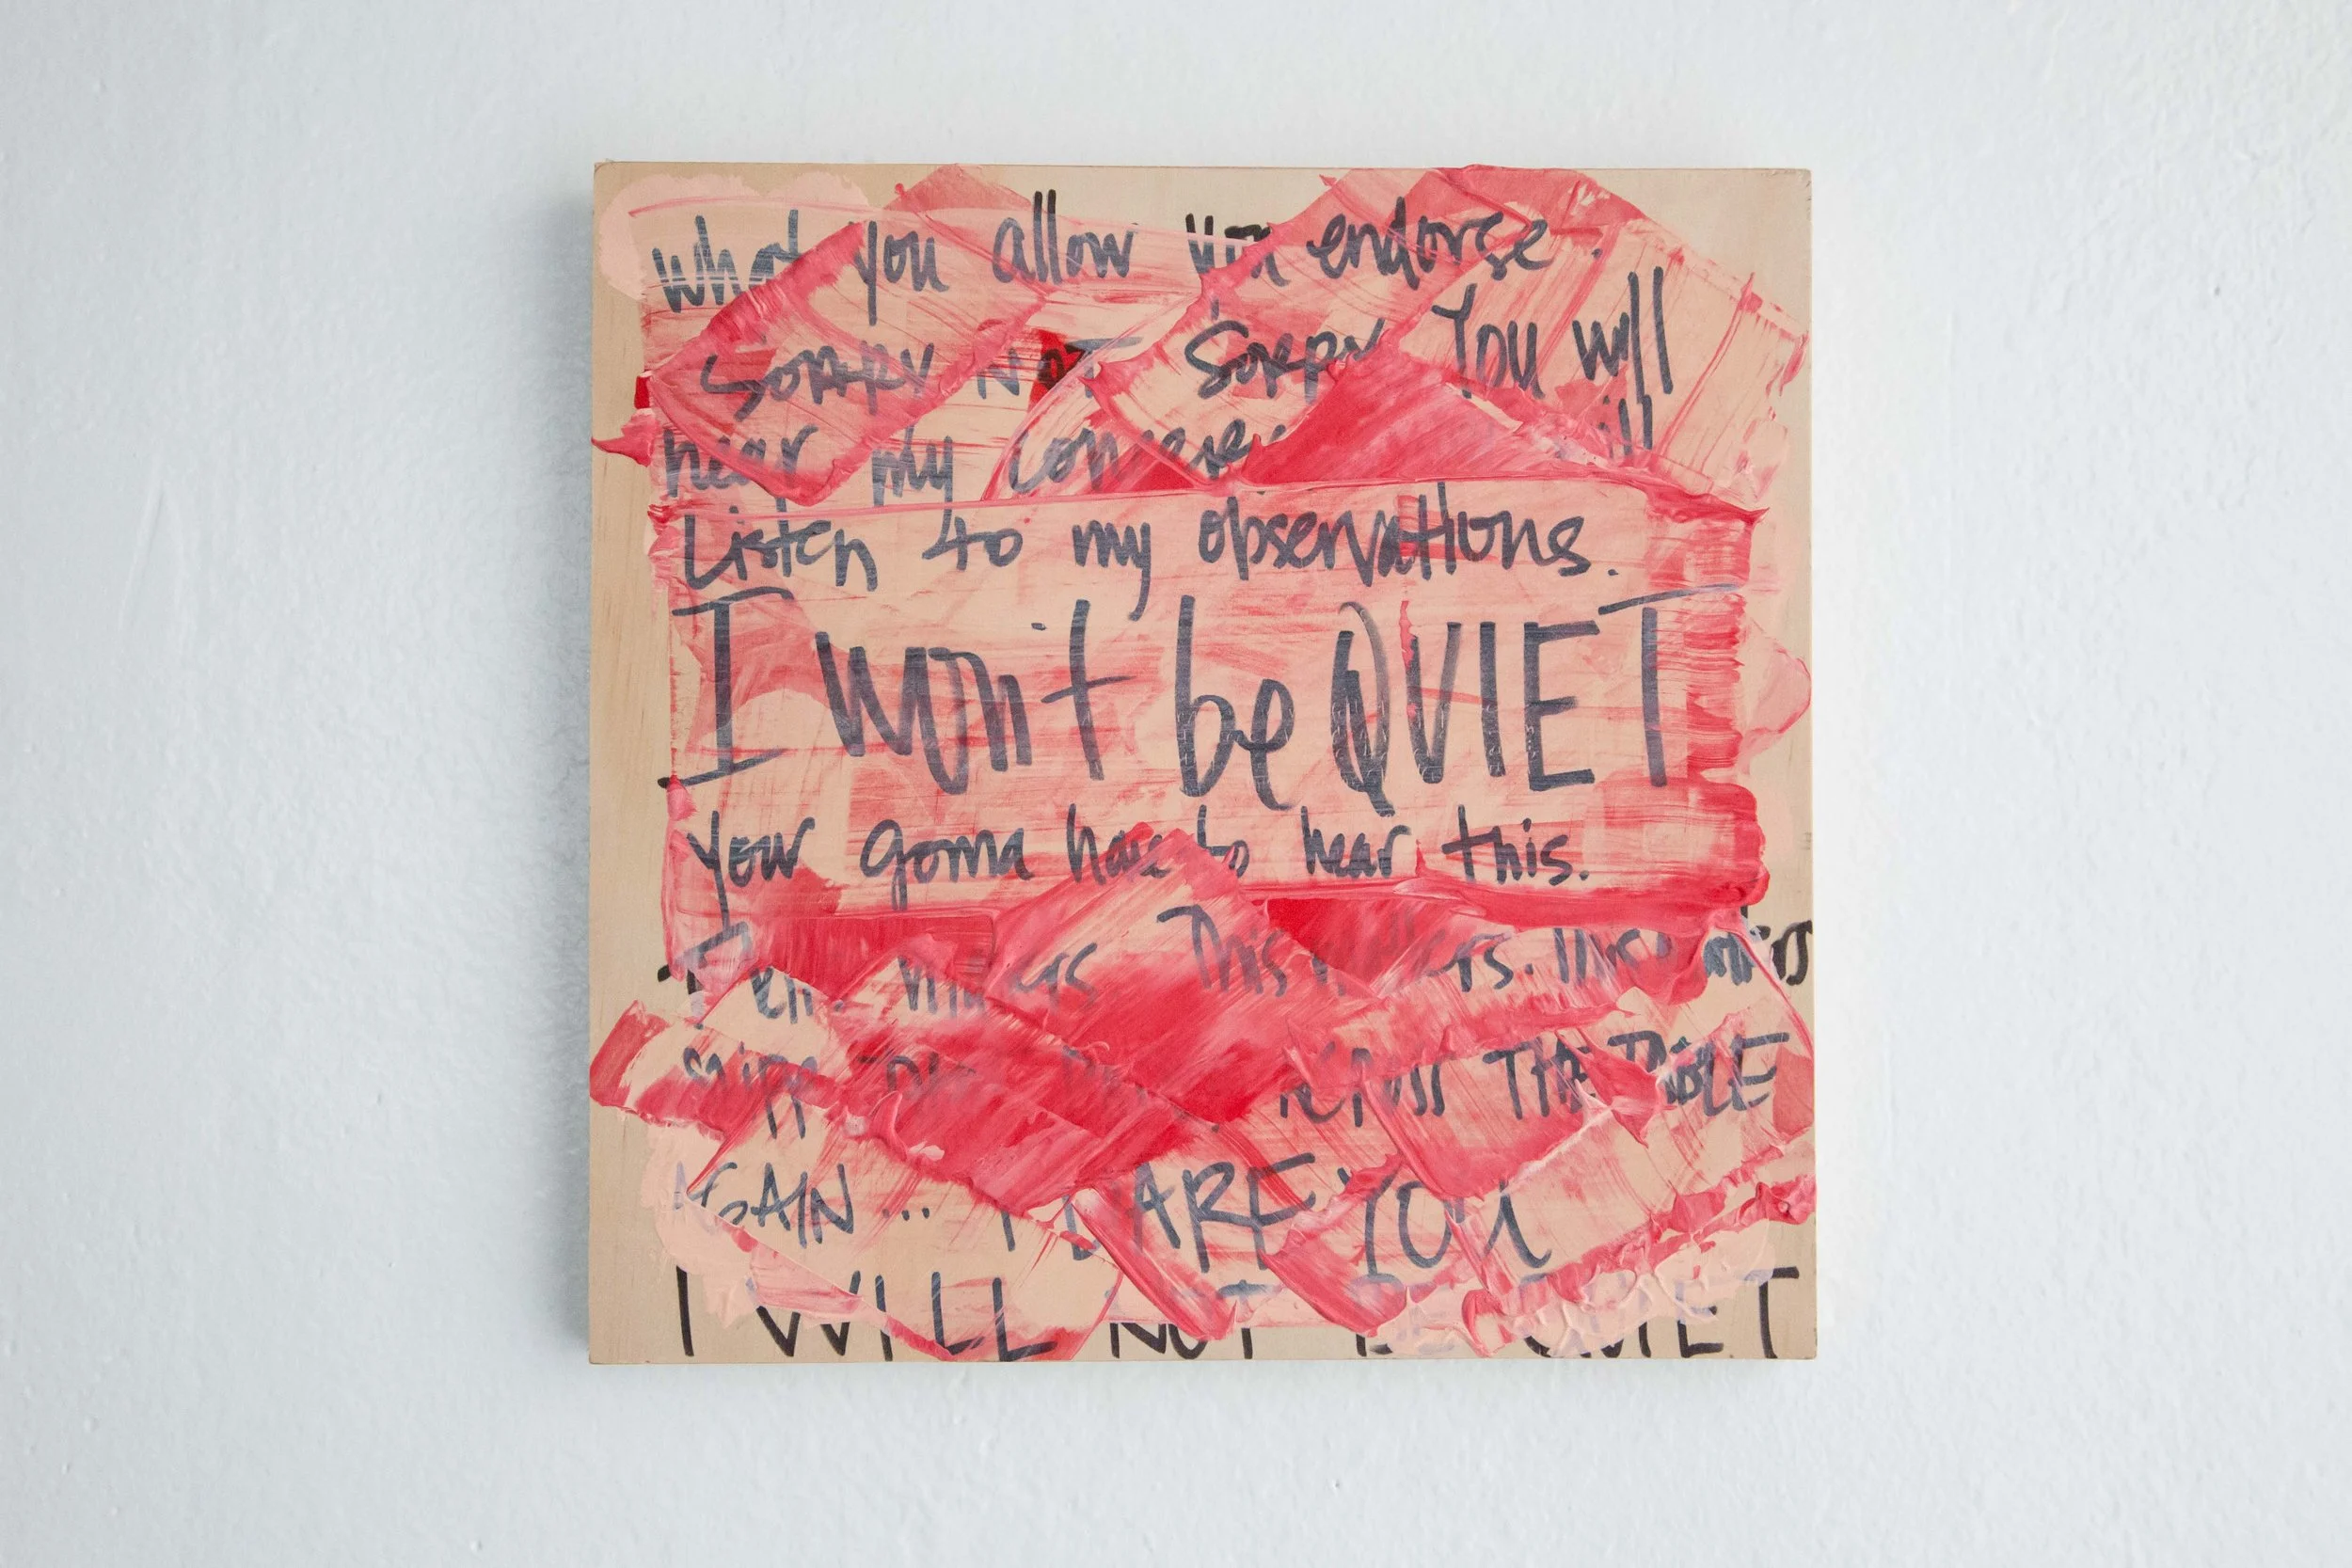 what you allow you endorse.
Sorry NOT Sorry You will
hear my
Listen to my observations.
I won't be QUIET
your gonna have to hear this.
This matters. This
ACROSS THE TABLE
AGAIN... I DARE YOU
I WILL NOT BE QUIET